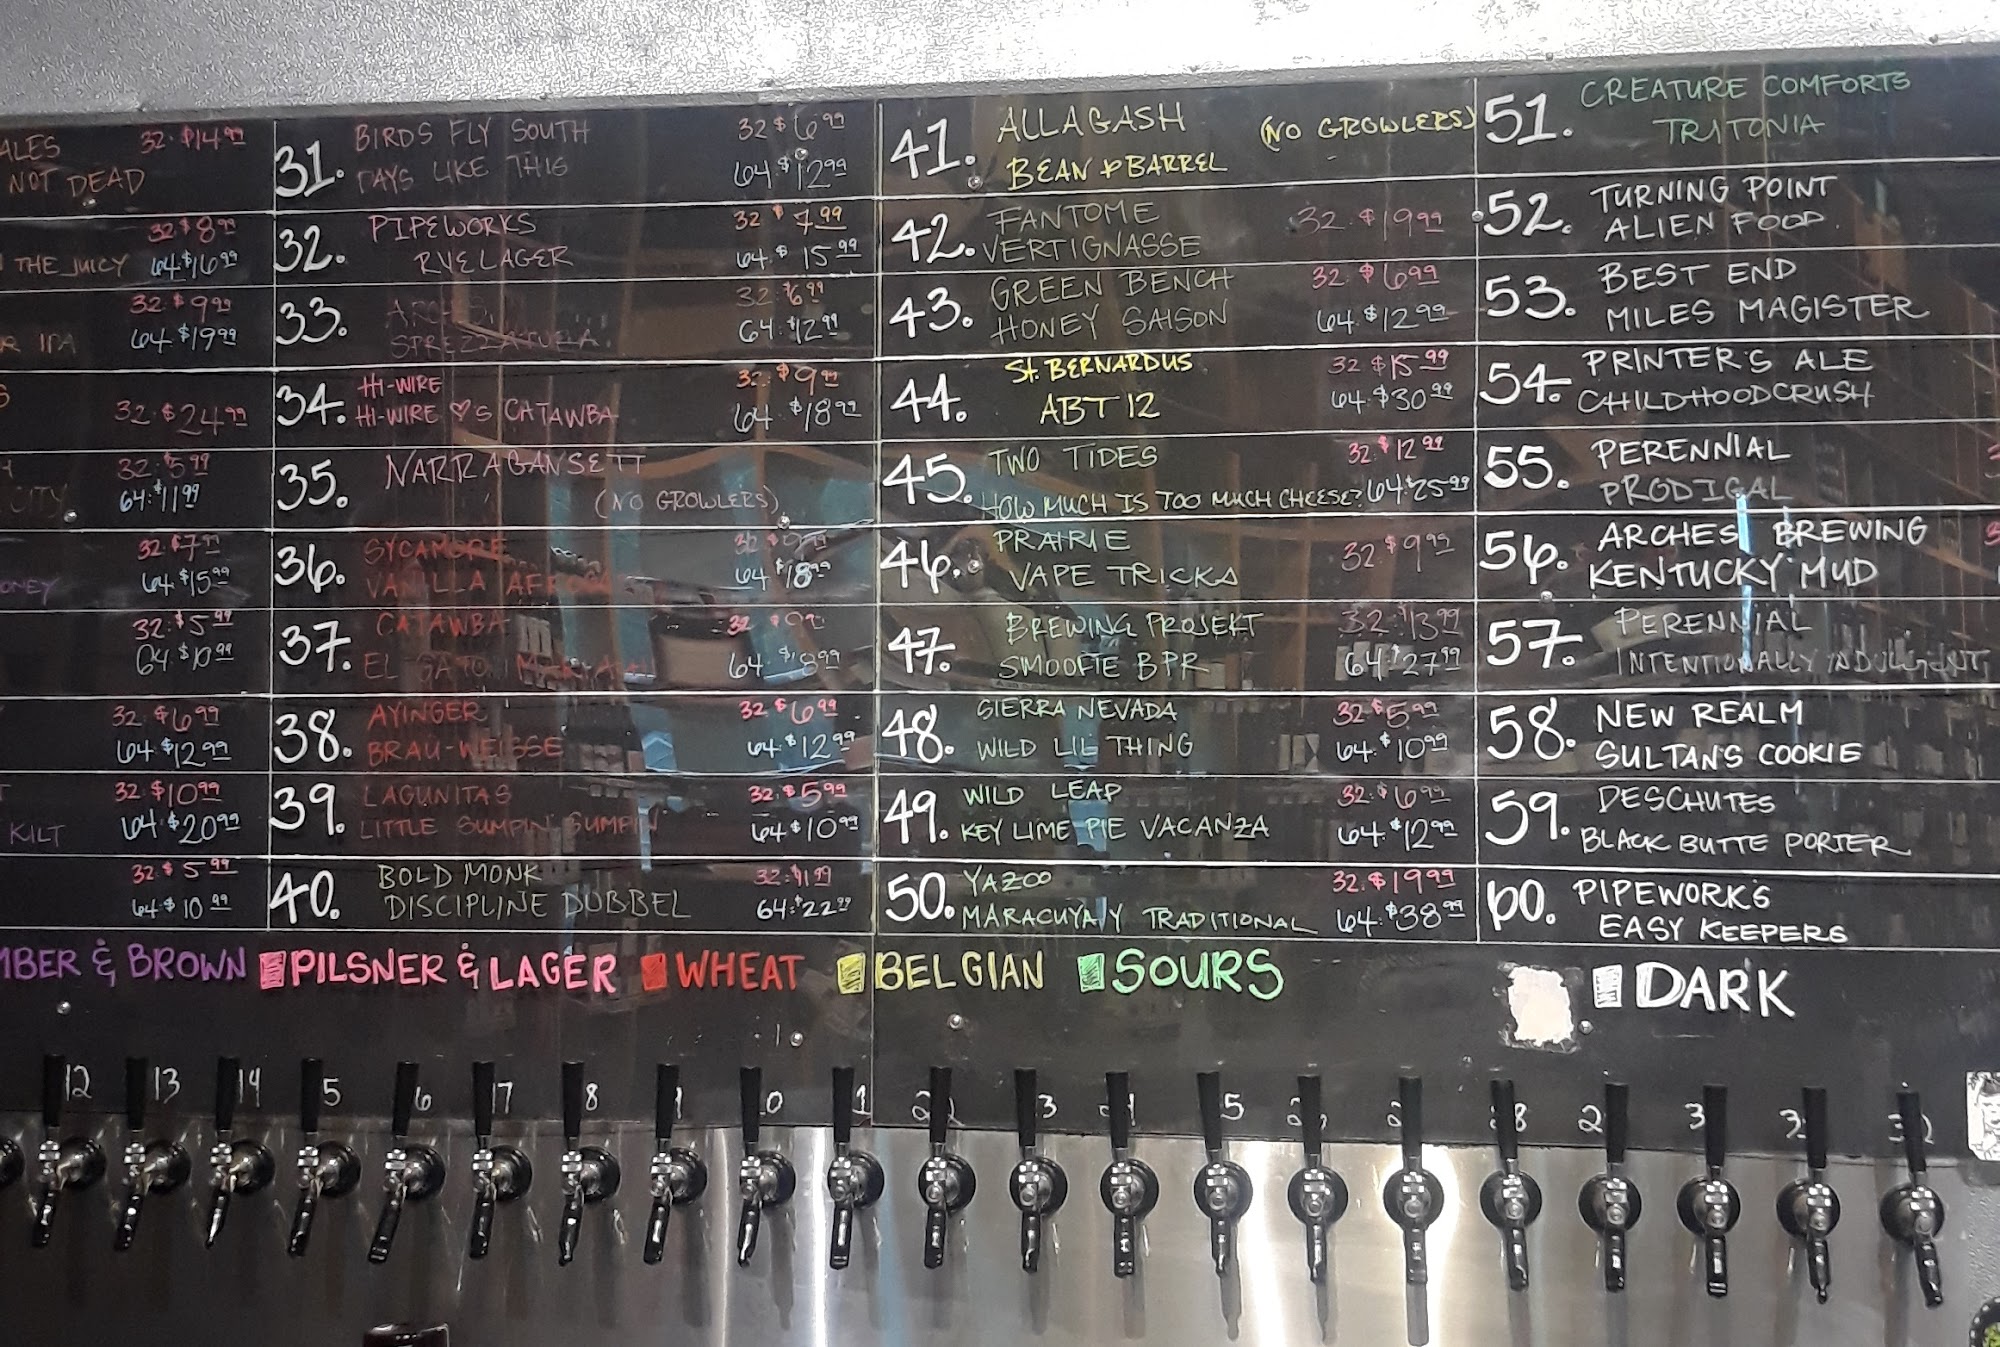 ALES 32.$14.99
NOT DEAD
32 $8.99
THE JUICY 64.$16.99
32.$9.99
IPA 64.$19.99
32.$24.99
32.$5.99
CITY 64.$11.99
32 $7.99
ONEY 64 $15.99
32.$5.99
64.$10.99
32.$6.99
64.$12.99
32.$10.99
KILT 64.$20.99
32.$5.99
64.$10.99
31. BIRDS FLY SOUTH 32 $6.99
DAYS LIKE THIS 64.$12.99
32. PIPEWORKS 32 $7.99
RYE LAGER 64.$15.99
33. ARCHES 32.$6.99
SPREZZATURA 64.$12.99
34. HI-WIRE 32.$9.99
HI-WIRE ♥S CATAWBA 64.$18.99
35. NARRAGANSETT
(NO GROWLERS)
36. SYCAMORE 32
VANILLA 64 $18.99
37. CATAWBA 32
EL GATO 64.$18.99
38. AYINGER 32 $6.99
BRAU-WEISSE 64.$12.99
39. LAGUNITAS 32.$5.99
LITTLE SUMPIN' SUMPIN' 64 $10.99
40. BOLD MONK 32.$11.99
DISCIPLINE DUBBEL 64.$22.99
41. ALLAGASH (NO GROWLERS)
BEAN & BARREL
42. FANTOME 32.$19.99
VERTIGNASSE
43. GREEN BENCH 32.$6.99
HONEY SAISON 64.$12.99
44. St. BERNARDUS 32 $15.99
ABT 12 64.$30.99
45. TWO TIDES 32.$12.99
HOW MUCH IS TOO MUCH CHEESE? 64.$25.99
46. PRAIRIE 32.$9.99
VAPE TRICKS
47. BREWING PROJEKT 32.$13.99
SMOOFIE BPR 64.$27.99
48. SIERRA NEVADA 32.$5.99
WILD LIL THING 64.$10.99
49. WILD LEAP 32.$6.99
KEY LIME PIE VACANZA 64.$12.99
50. YAZOO 32.$19.99
MARACUYA Y TRADITIONAL 64.$38.99
51. CREATURE COMFORTS
TRITONIA
52. TURNING POINT
ALIEN FOOD
53. BEST END
MILES MAGISTER
54. PRINTER'S ALE
CHILDHOOD CRUSH
55. PERENNIAL
PRODIGAL
56. ARCHES BREWING
KENTUCKY MUD
57. PERENNIAL
INTENTIONALLY INDULGENT
58. NEW REALM
SULTAN'S COOKIE
59. DESCHUTES
BLACK BUTTE PORTER
60. PIPEWORKS
EASY KEEPERS
MBER & BROWN PILSNER & LAGER WHEAT BELGIAN SOURS DARK
12 13 14 5 6 17 8 1 0 1 2 3 5 2 2 28 2 3 3 3